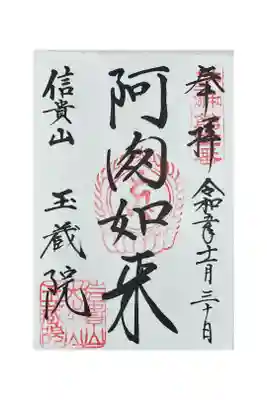 奉拝
令和五年十一月三十日
阿閦如来
信貴山
玉蔵院